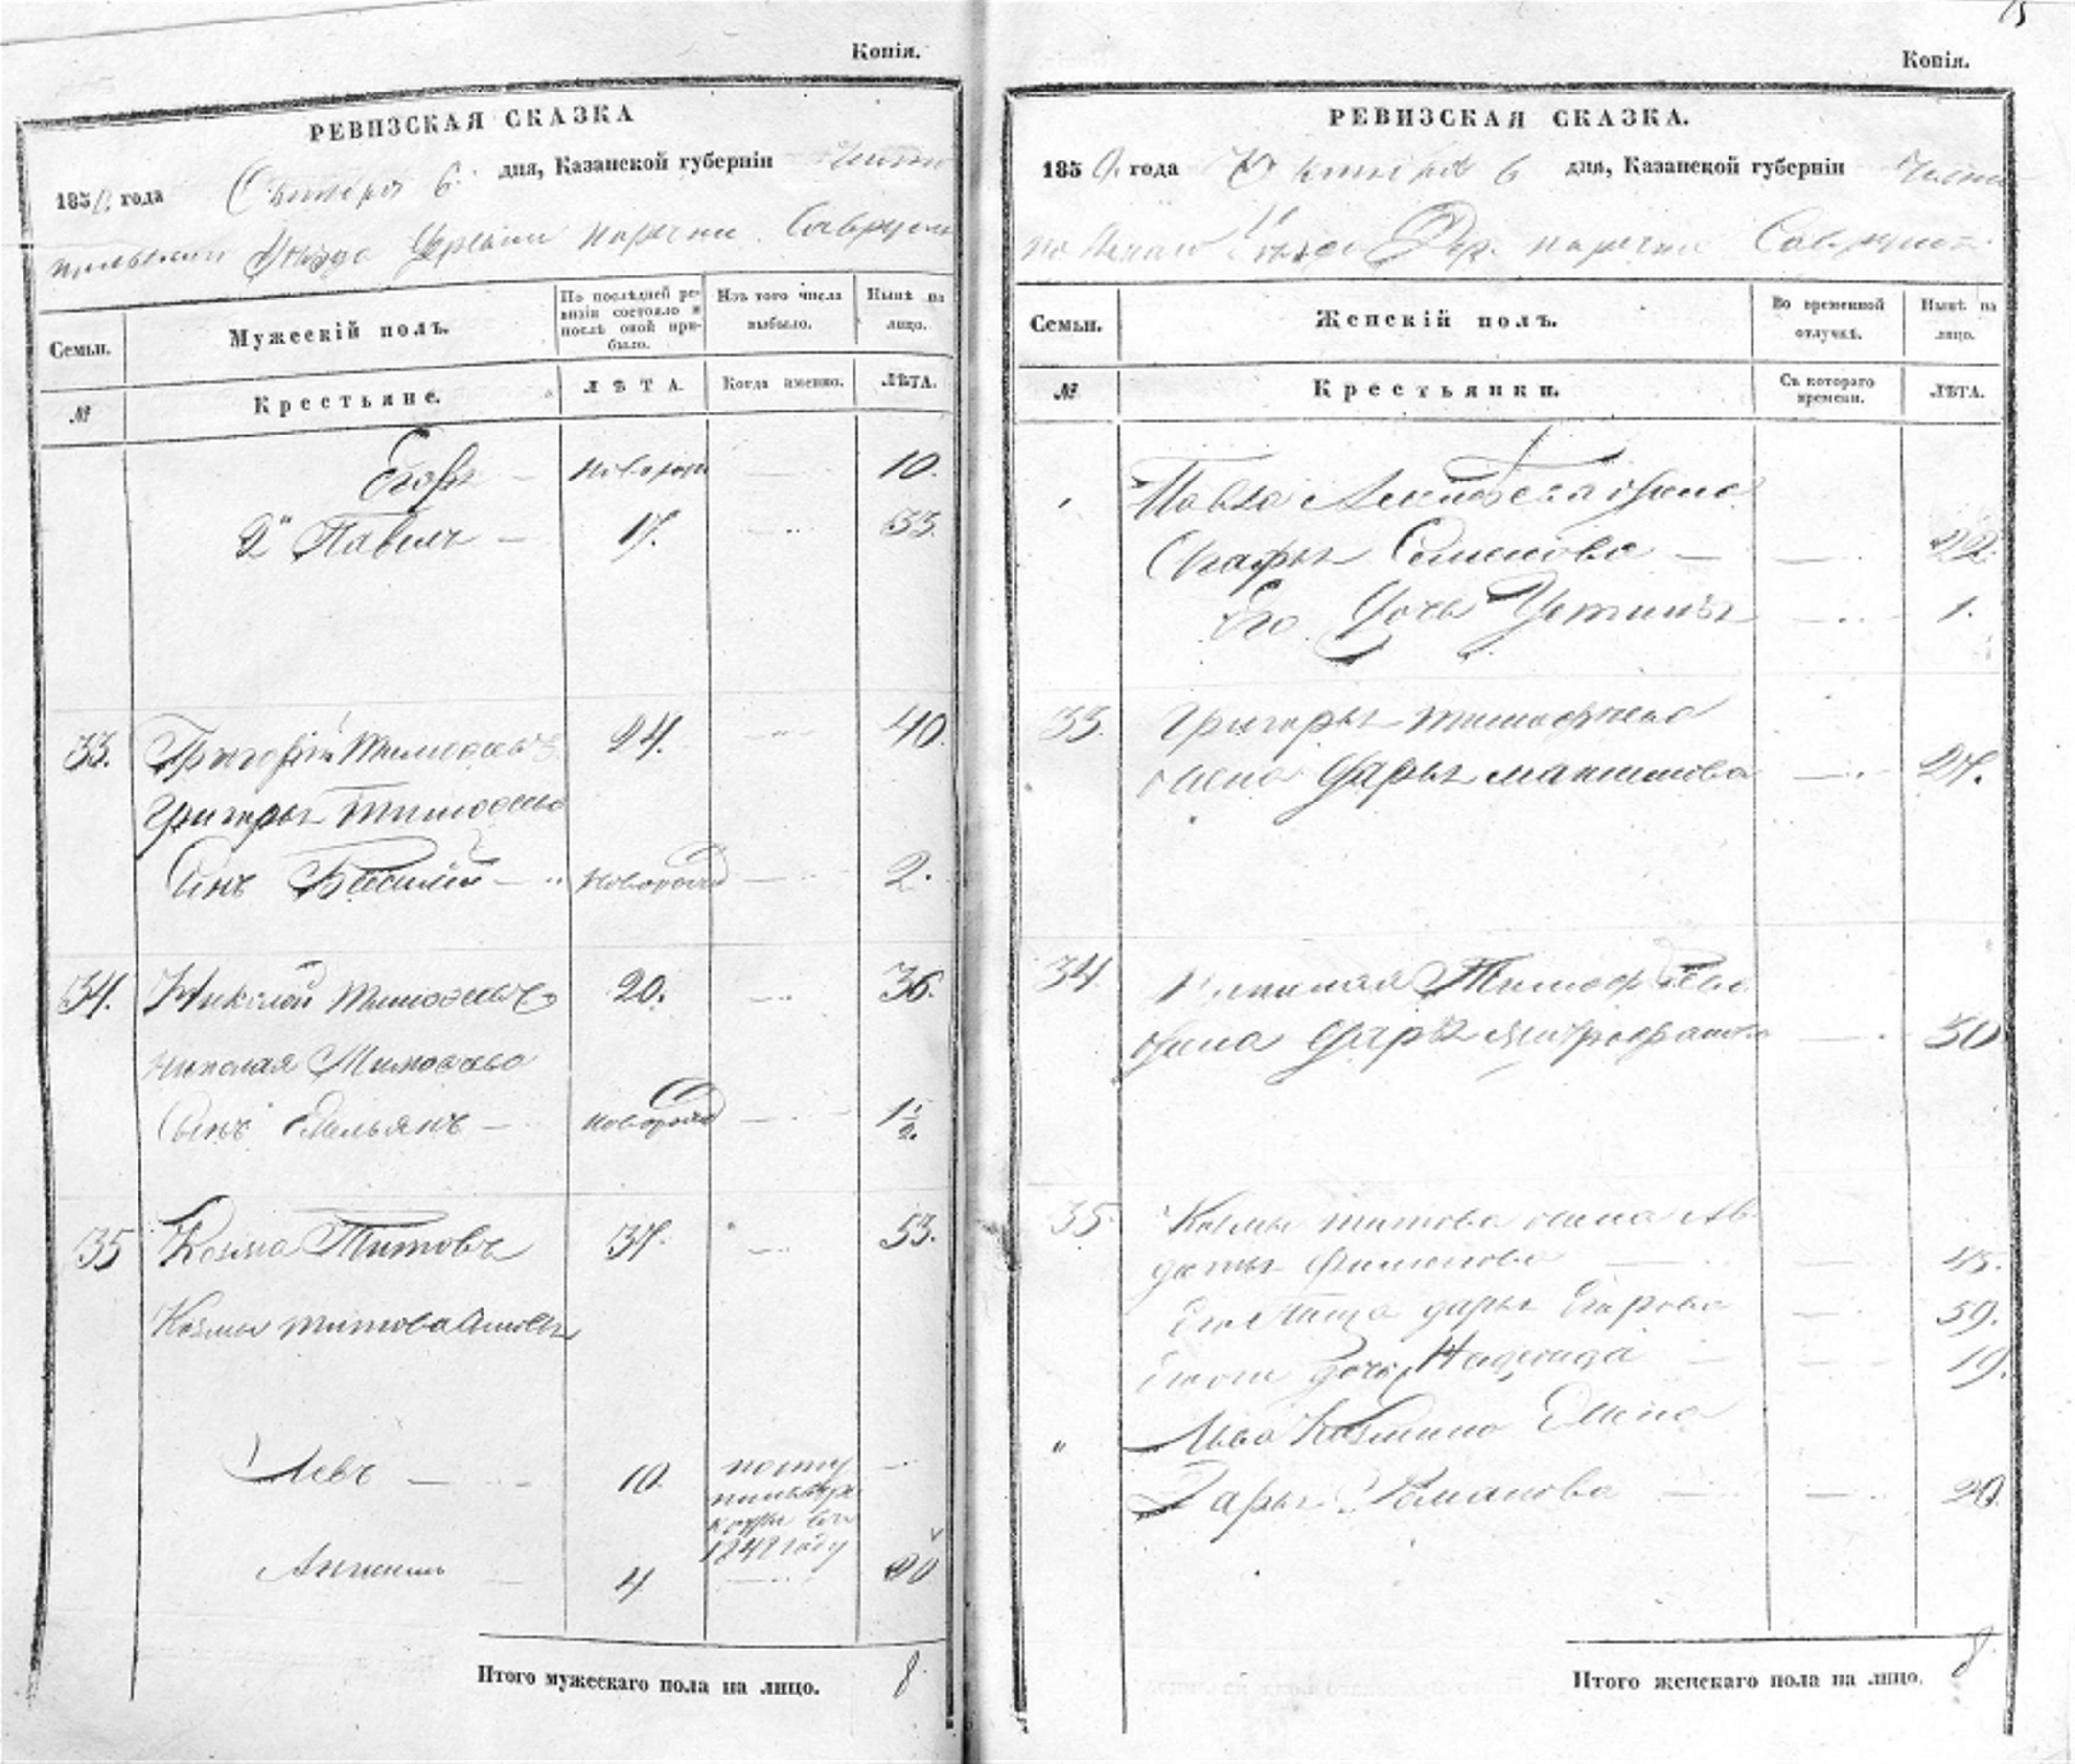 Копія.
РЕВИЗСКАЯ СКАЗКА
1850 года Октября 6 дня, Казанской губерніи Чисто
польскаго Уѣзда Деревни
Семьи.
Мужескій полъ.
По послѣдней ре-
визіи состояло и
послѣ оной при-
было.
Изъ того числа
выбыло.
Нынѣ на
лицо.
№
Крестьяне.
ЛѢТА.
Когда именно.
ЛѢТА.
Егоръ — новорож — 10.
2й Павелъ — 17. — 33.
33. Григорій Тимофеевъ 24. " 40.
Григорья Тимофеева
Сынъ Василій — новорожд — 2.
34. Николай Тимофеевъ 20. — 36.
Николая Тимофеева
Сынъ Емельянъ — новорожд — 1 1/2.
35 Козма Титовъ 37. — 53.
Козмы Титова Сыновья
Левъ — 10. —
въ
1848 году
4 — 20
Итого мужескаго пола на лицо. 8.
15
Копія.
РЕВИЗСКАЯ СКАЗКА.
1850 года Октября 6 дня, Казанской губерніи Чисто
Уѣзда Дер.
Семьи.
Женскій полъ.
Во временной
отлучкѣ.
Нынѣ на
лицо.
№
Крестьянки.
Съ котораго
времени.
ЛѢТА.
Павла жена
Семенова — — 22.
Его Дочь Устинья — 1.
33. Григорья Тимофеева
жена Дарья Максимова — 27.
34. Николая Тимофеева
жена Дарья Митрофанова — 30
35. Козмы Титова жена Ав
дотья — —
Дарья Егорова — 59.
дочь Надежда — — 19.
" Льва Козмина Жена
Дарья Романова — — 20.
Итого женскаго пола на лицо. 8.